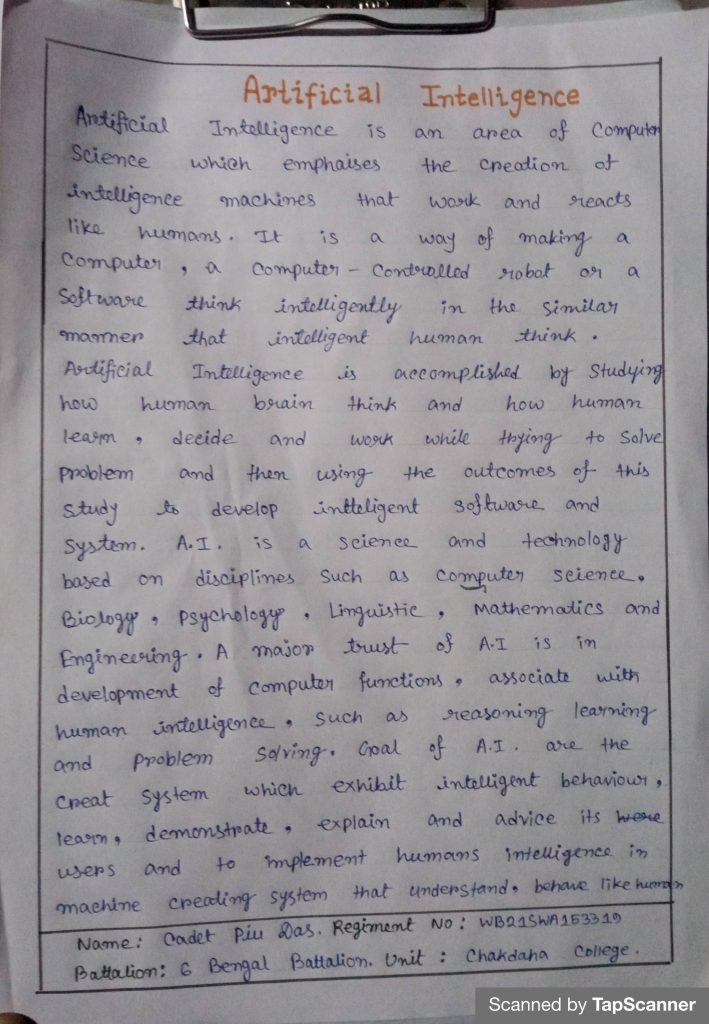 Artificial Intelligence
Artificial Intelligence is an area of Computer
Science which emphaises the creation of
intelligence machines that work and reacts
like humans. It is a way of making a
Computer, a Computer - Controlled robot or a
Software think intelligently in the similar
manner that intelligent human think.
Artificial Intelligence is accomplished by Studying
how human brain think and how human
learn, decide and work while trying to solve
problem and then using the outcomes of this
study to develop intteligent software and
system. A.I. is a science and technology
based on disciplines such as computer science,
Biology, psychology, Linguistic, Mathematics and
Engineering. A major trust of A.I is in
development of computer functions, associate with
human intelligence, such as reasoning learning
and problem solving. Goal of A.I. are the
creat system which exhibit intelligent behaviour,
learn, demonstrate, explain and advice its were
users and to implement humans intelligence in
machine creating system that understand, behave like human
Name: Cadet Piu Das. Regiment No: WB21SWA153319
Battalion: 6 Bengal Battalion. Unit: Chakdaha College.
Scanned by TapScanner